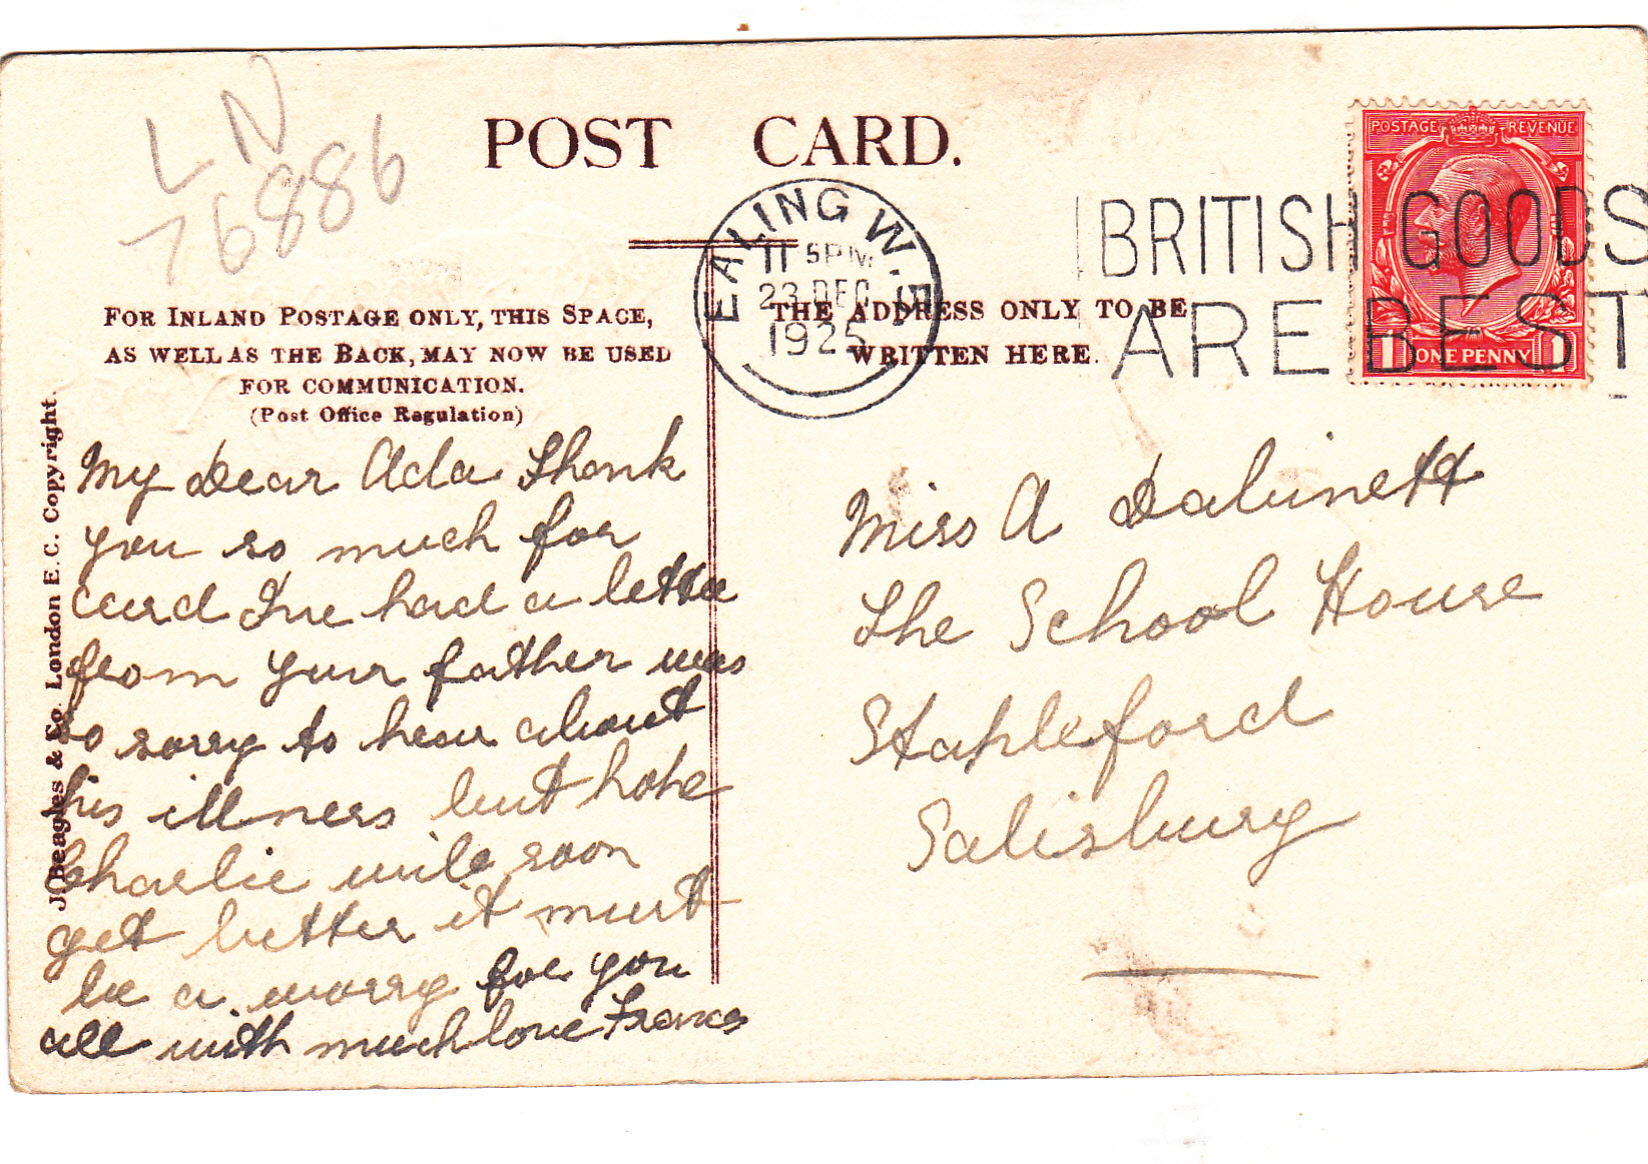 LN
76886
POST CARD.
EALING W.5
11 5PM
23 DEC
1925
BRITISH GOODS
ARE BEST
POSTAGE REVENUE
1 ONE PENNY 1
FOR INLAND POSTAGE ONLY, THIS SPACE,
AS WELL AS THE BACK, MAY NOW BE USED
FOR COMMUNICATION.
(Post Office Regulation)
THE ADDRESS ONLY TO BE
WRITTEN HERE.
J. Beagles & Co. London E. C. Copyright.
My Dear Ada Thank
you so much for
card I've had a letter
from your father was
so sorry to hear about
his illness but hope
Charlie will soon
get better it must
be a worry for you
all with much love
Miss A Dabinett
The School House
Stapleford
Salisbury